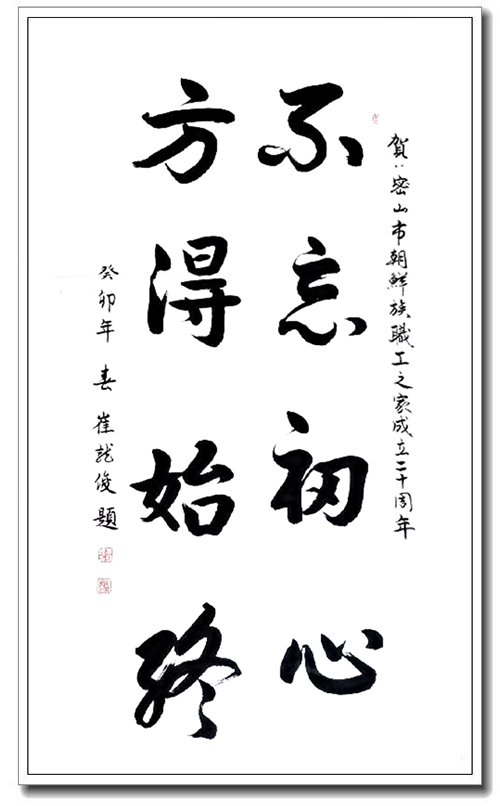 賀：密山市朝鮮族職工之家成立二十周年
不忘初心
方得始終
癸卯年 春 崔龍俊 題